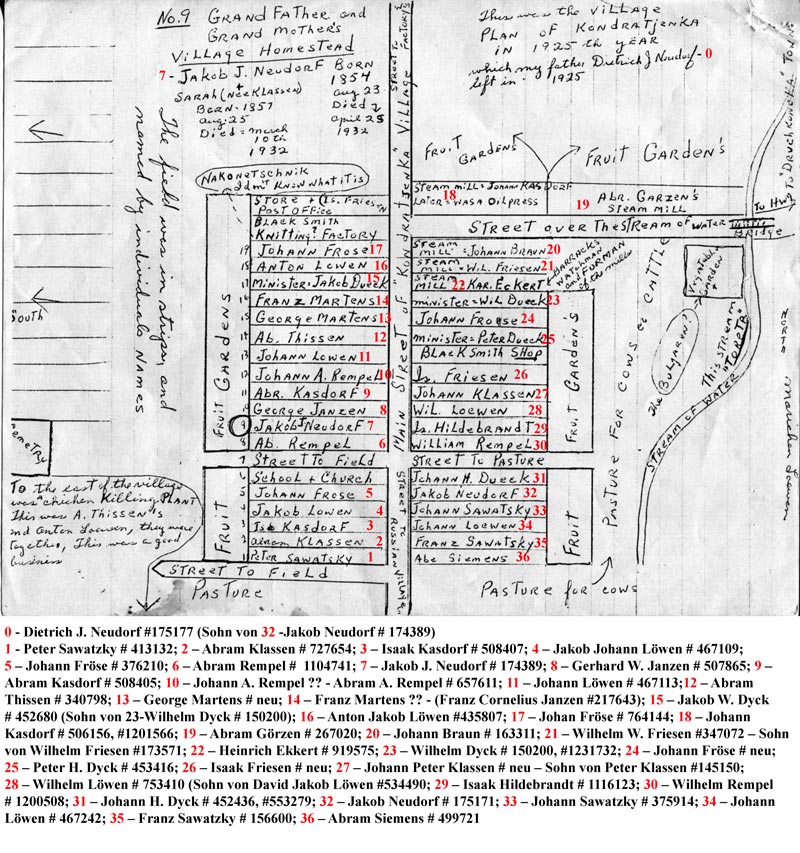 No.9 GRAND FATHER and
GRAND MOTHER'S
VILLAGE HOMESTEAD
7 - JAKOB J. NEUDORF BORN
1854
SARAH (NEE KLASSEN) Aug 23
BORN. 1857 Died
Aug. 25 April 25
Died = March 1932
10th
1932
This was the VILLAGE
PLAN OF KONDRATJENKA
IN 1925 th YEAR
which my father Dietrich J Neudorf - 0
left in. 1925
STREET TO FACTORY'S
MAIN STREET OF "KONDRATJENKA" VILLAGE
STREET TO RUSSIAN VILLAGE
The field was in strips, and
named by individuals NAMES
South
NAKONETSCHNIK
I dm't KNOW WHAT IT IS
STORE + (Is. FRIESEN
POST OFFICE
BLACK SMITH
KNITTING? FACTORY
JOHANN FROSE 17
ANTON LOWEN 16
MINISTER: JAKOB DUECK 15
FRANZ MARTENS 14
GEORGE MARTENS 13
Ab. THISSEN 12
JOHANN LOWEN 11
JOHANN A. REMPEL 10
ABR. KASDORF 9
GEORGE JANZEN 8
9 JAKOB J NEUDORF 7
8 Ab. REMPEL 6
7 STREET TO FIELD
6 SCHOOL + CHURCH
5 JOHANN FROSE 5
4 JAKOB LOWEN 4
3 Isb KASDORF 3
2 ABRAM KLASSEN 2
1 PETER SAWATSKY 1
STREET TO FIELD
PASTURE
FRUIT GARDENS
FRUIT
To the east of the village
was "chicken Killing PLANT
This was A. THISSEN'S
and Anton Loewen, they were
together, This was a good
business
FRUIT GARDENS
FRUIT GARDEN'S
STEAM MILL = JOHANN KASDORF
18
LATER = WAS A OIL PRESS
19 ABR. GARZEN'S
STEAM MILL
TO HWY
STREET OVER THE STREAM OF WATER
BRIDGE
STEAM MILL = JOHANN BRAUN 20
STEAM MILL = WIL. FRIESEN 21
STEAM MILL 22 KAR. ECKERT
MINISTER = WIL DUECK 23
JOHANN FROESE 24
MINISTER = PETER DUECK 25
BLACK SMITH SHOP
Is. FRIESEN 26
JOHANN KLASSEN 27
WIL. LOEWEN 28
Is. HILDEBRANDT 29
WILLIAM REMPEL 30
STREET TO PASTURE
JOHANN H. DUECK 31
JAKOB NEUDORF 32
JOHANN SAWATSKY 33
JOHANN LOEWEN 34
FRANZ SAWATSKY 35
ABE SIEMENS 36
BARRACKS
WATCHMAN
and FORMAN
of the mills
FRUIT GARDEN'S
FRUIT
PASTURE FOR COWS or CATTLE
PASTURE FOR COWS
VEGATABLE GARDEN
The (BULGARON!)
THIS STREAM
"TORETR"
STREAM OF WATER
NORTH
0 - Dietrich J. Neudorf #175177 (Sohn von 32 -Jakob Neudorf # 174389)
1 - Peter Sawatzky # 413132; 2 – Abram Klassen # 727654; 3 – Isaak Kasdorf # 508407; 4 – Jakob Johann Löwen # 467109;
5 – Johann Fröse # 376210; 6 – Abram Rempel # 1104741; 7 – Jakob J. Neudorf # 174389; 8 – Gerhard W. Janzen # 507865; 9 –
Abram Kasdorf # 508405; 10 – Johann A. Rempel ?? - Abram A. Rempel # 657611; 11 – Johann Löwen # 467113;12 – Abram
Thissen # 340798; 13 – George Martens # neu; 14 – Franz Martens ?? - (Franz Cornelius Janzen #217643); 15 – Jakob W. Dyck
# 452680 (Sohn von 23-Wilhelm Dyck # 150200); 16 – Anton Jakob Löwen #435807; 17 – Johan Fröse # 764144; 18 – Johann
Kasdorf # 506156, #1201566; 19 – Abram Görzen # 267020; 20 – Johann Braun # 163311; 21 – Wilhelm W. Friesen #347072 – Sohn
von Wilhelm Friesen #173571; 22 – Heinrich Ekkert # 919575; 23 – Wilhelm Dyck # 150200, #1231732; 24 – Johann Fröse # neu;
25 – Peter H. Dyck # 453416; 26 – Isaak Friesen # neu; 27 – Johann Peter Klassen # neu – Sohn von Peter Klassen #145150;
28 – Wilhelm Löwen # 753410 (Sohn von David Jakob Löwen #534490; 29 – Isaak Hildebrandt # 1116123; 30 – Wilhelm Rempel
# 1200508; 31 – Johann H. Dyck # 452436, #553279; 32 – Jakob Neudorf # 175171; 33 – Johann Sawatzky # 375914; 34 – Johann
Löwen # 467242; 35 – Franz Sawatzky # 156600; 36 – Abram Siemens # 499721